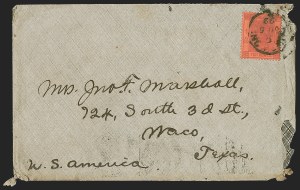 Mrs. Jno. F. Marshall,
724, South 3d st.,
Waco,
Texas.
U.S. America.